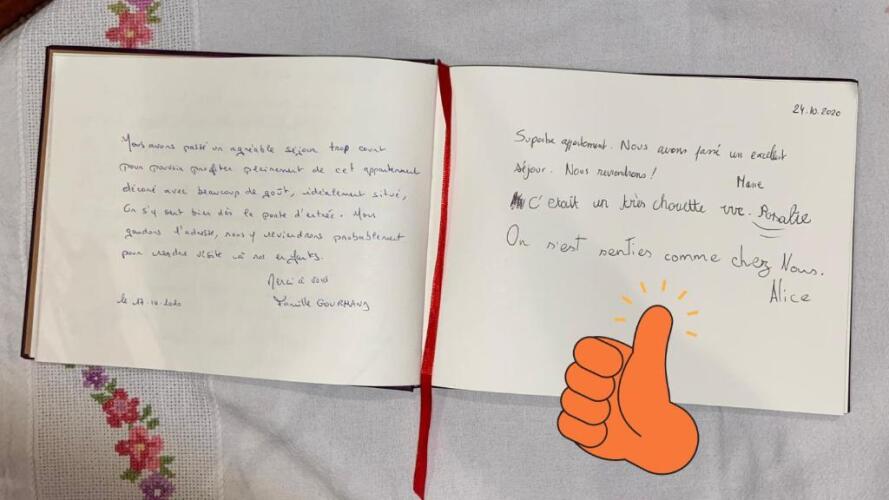 Nous avons passé un agréable séjour trop court
pour pouvoir profiter pleinement de cet appartement
décoré avec beaucoup de goût, idéalement situé,
On s'y sent bien dès la porte d'entrée. Nous
gardons l'adresse, nous y reviendrons probablement
pour rendre visite à nos enfants.
Merci à vous
le 17.10.2020
Famille
24.10.2020
Superbe appartement. Nous avons passé un excellent
séjour. Nous reviendrons !
Marie
C'etait un très chouette
On s'est senties comme chez Nous.
Alice